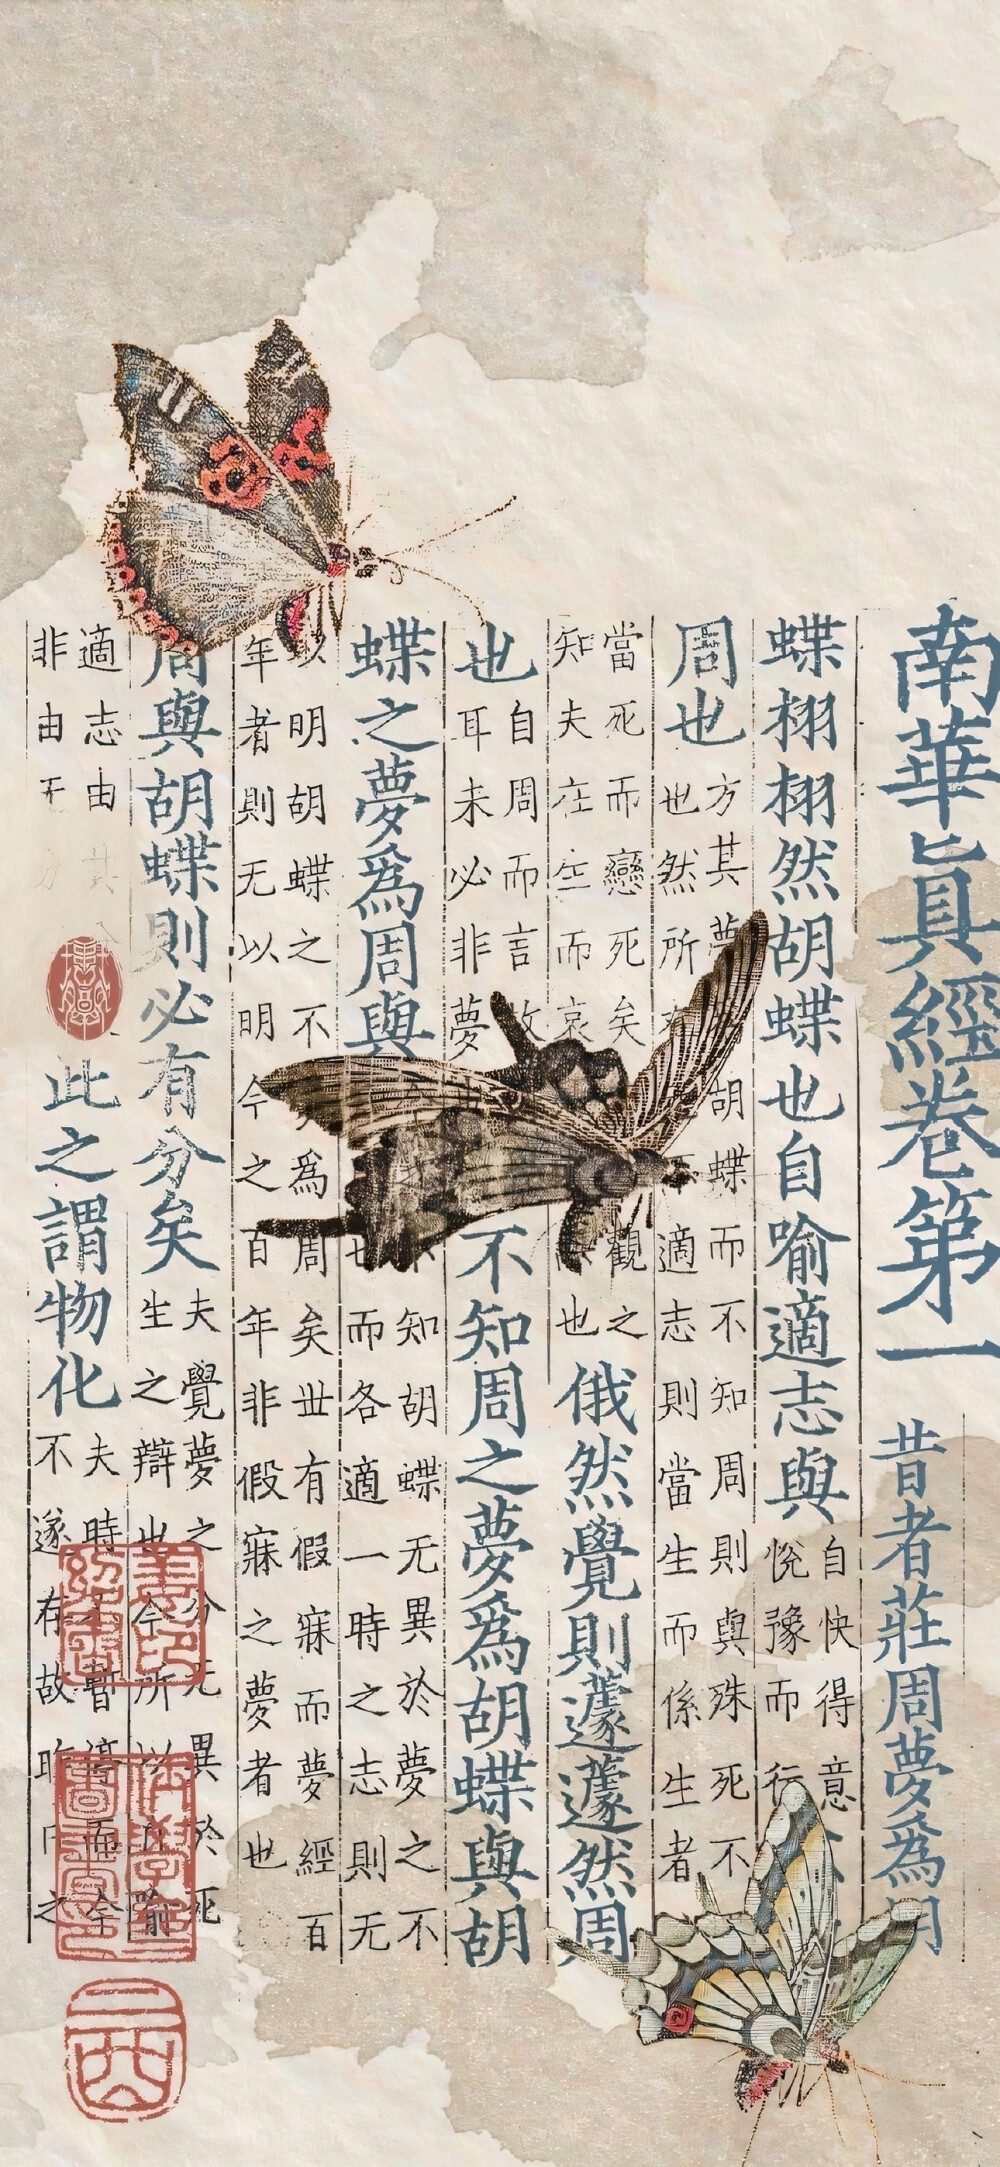 南華眞經卷第一
昔者莊周夢爲胡
蝶栩栩然胡蝶也自喻適志與
自快得意
悅豫而行
周也
方其夢胡蝶而不知周則與殊死不
也然所適志則當生而係生者
當死而戀死矣觀之
知夫在生而哀也
俄然覺則蘧蘧然周
也
自周而言故
耳未必非夢
不知周之夢爲胡蝶與胡
蝶之夢爲周與
知胡蝶无異於夢之不
而各適一時之志則无
以明胡蝶之不爲周矣世有假寐而夢經百
年者則无以明今之百年非假寐之夢者也
周與胡蝶則必有分矣
夫覺夢之分无異於死
生之辯也今所以喻
適志由其
非由无
此之謂物化
夫時暫停而今
不遂存故昨日之
二酉